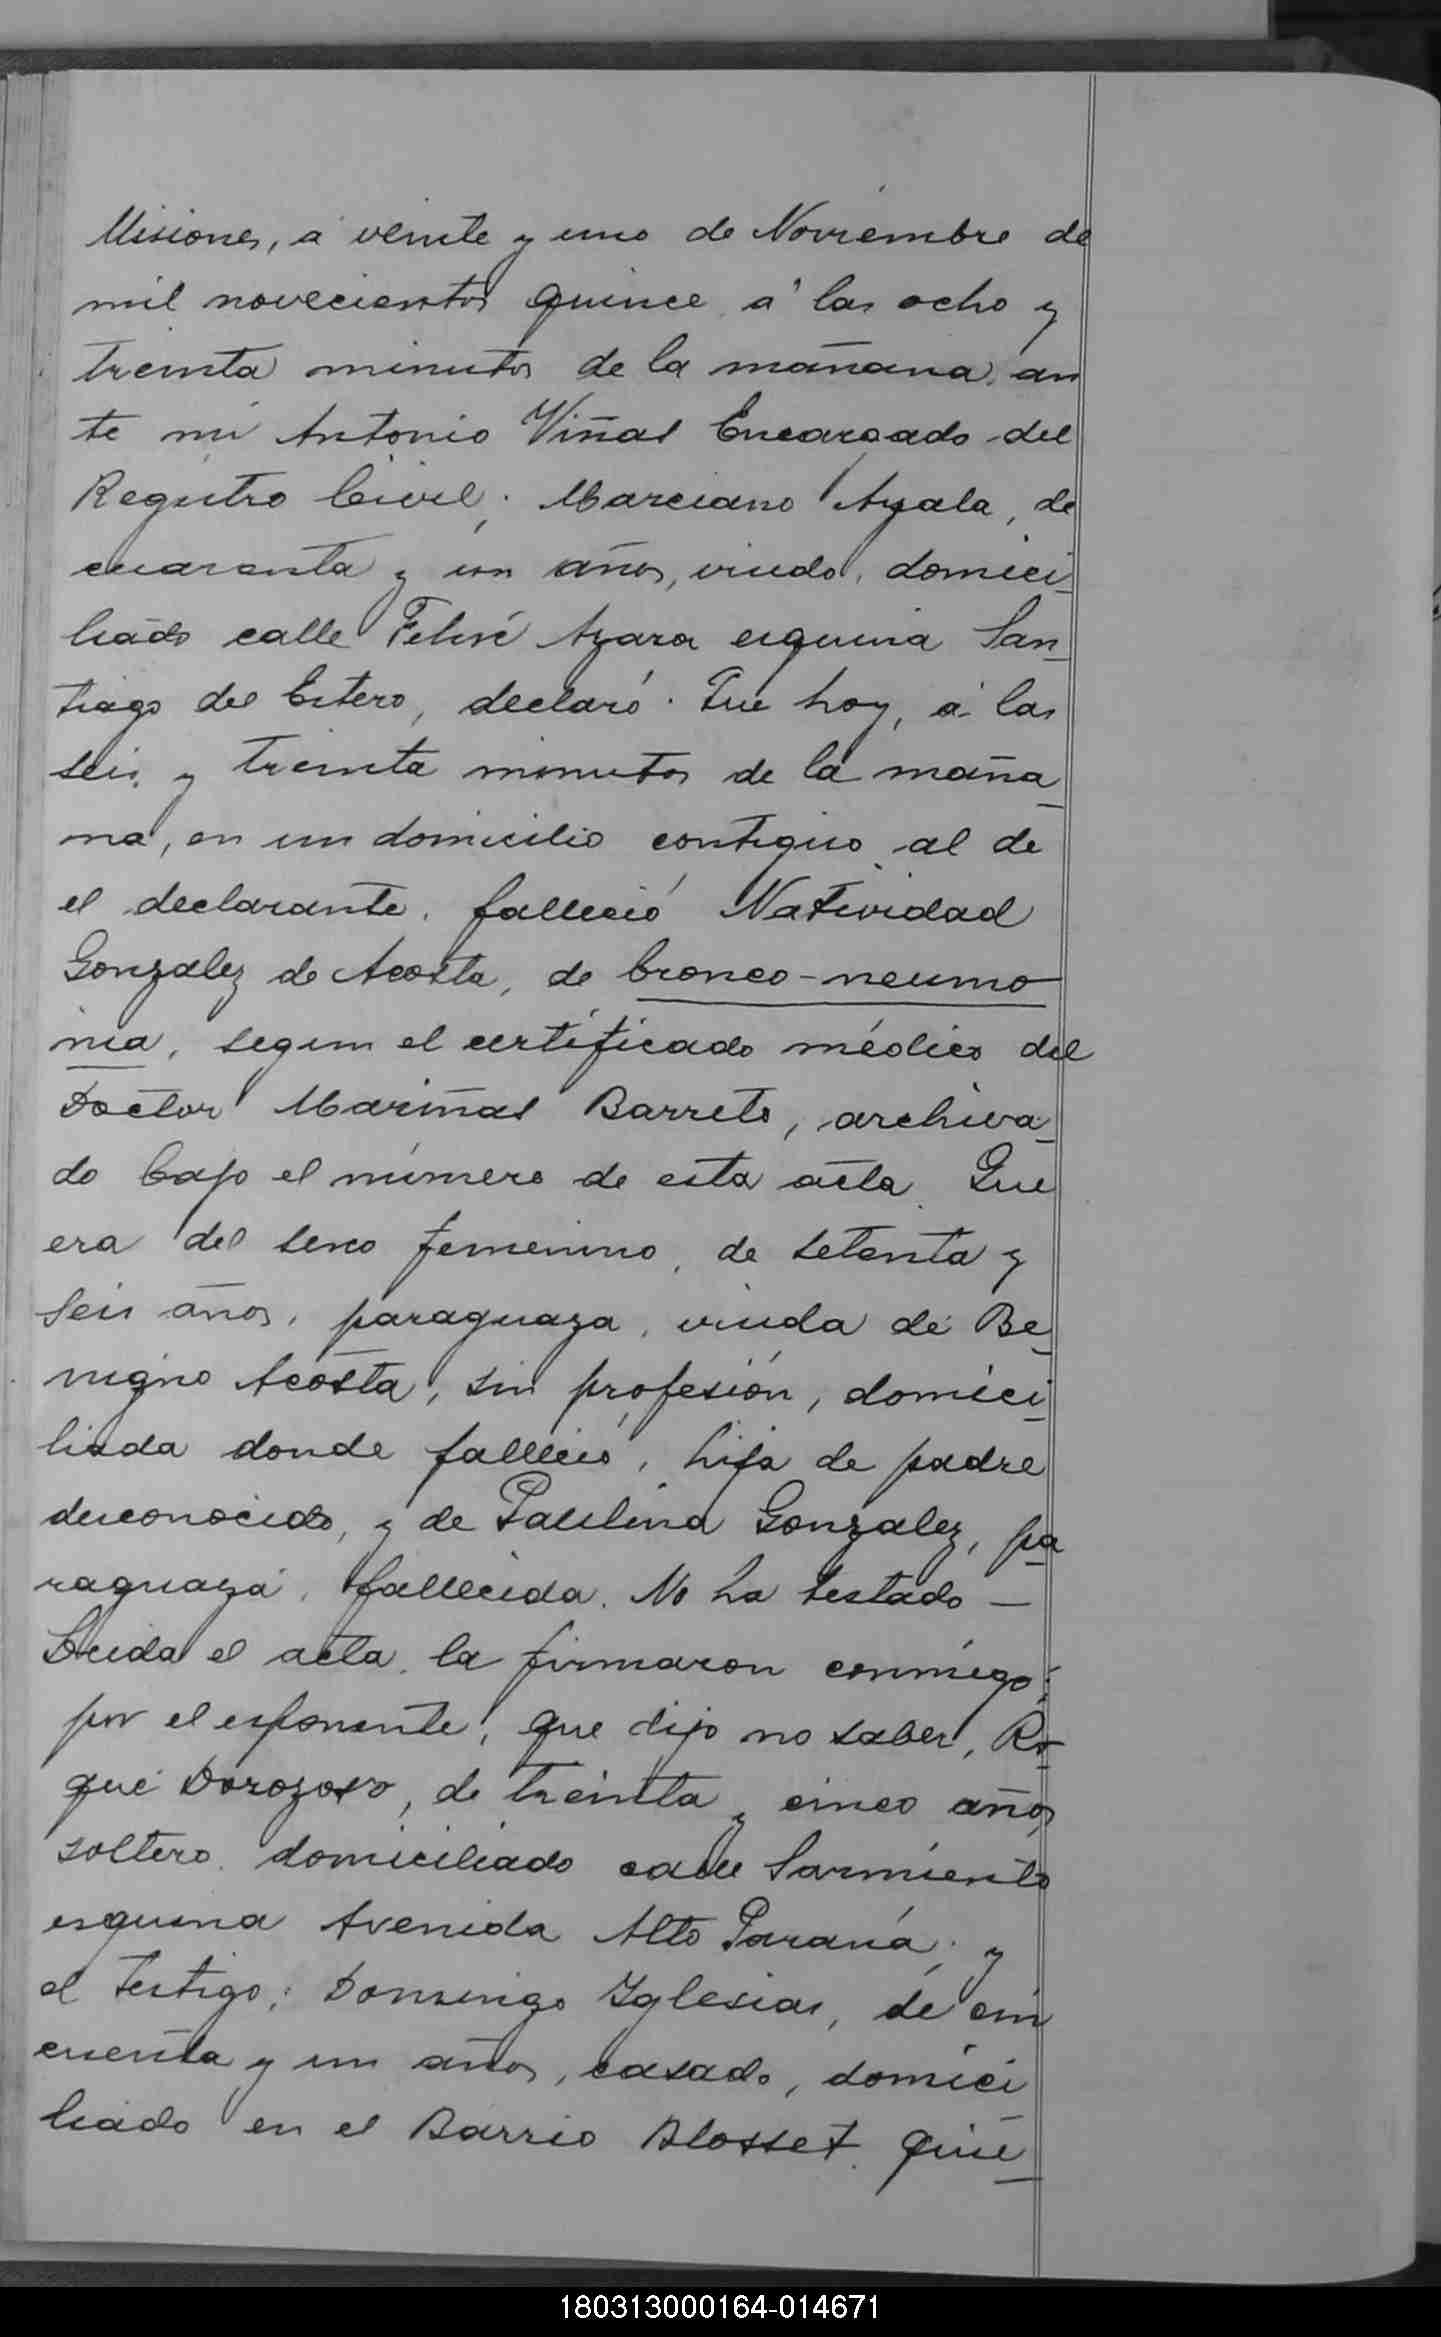 Misiones, á veinte y uno de Noviembre de
mil novecientos quince, á las ocho y
treinta minutos de la mañana, an
te mi Antonio Viñas Encargado del
Registro Civil; Marciano Ayala, de
cuarenta y un años, viudo, domici_
liado calle Felix Azara esquina San_
tiago del Estero, declaró: Que hoy, á las
seis y treinta minutos de la maña_
na, en un domicilio contiguo al de
el declarante, falleció Natividad
Gonzalez de Acosta, de bronco-neumo
nia, segun el certificado médico del
Doctor Mariñas Barreto, archiva_
do bajo el número de esta acta. Que
era del sexo femenino, de setenta y
seis años, paraguaya, viuda de Be_
nigno Acosta, sin profesión, domici_
liada donde falleció, hija de padre
desconocido, y de Paulina Gonzalez, pa
raguaya, fallecida. No ha testado —
Leida el acta, la firmaron conmigo:
por el exponente, que dijo no saber, Ro_
que, de treinta y cinco años,
soltero, domiciliado calle Sarmiento
esquina Avenida Alto Paraná; y
el testigo: Domingo Iglesias, de cin
cuenta y un años, casado, domici_
liado en el Barrio Blosset, quie_
180313000164-014671